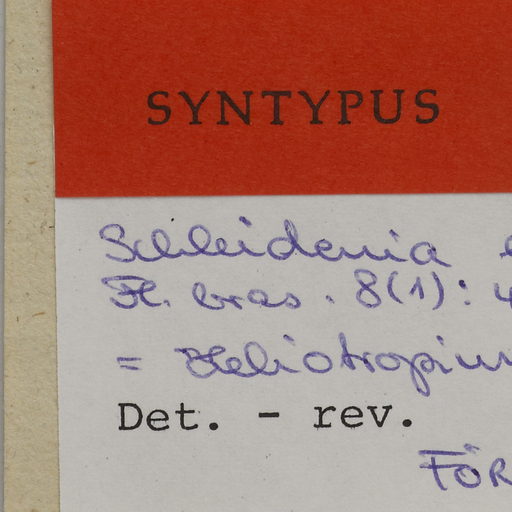 SYNTYPUS
Schleidenia
Fl. bras. 8(1): 4
= Heliotropium
Det. - rev.
FÖR